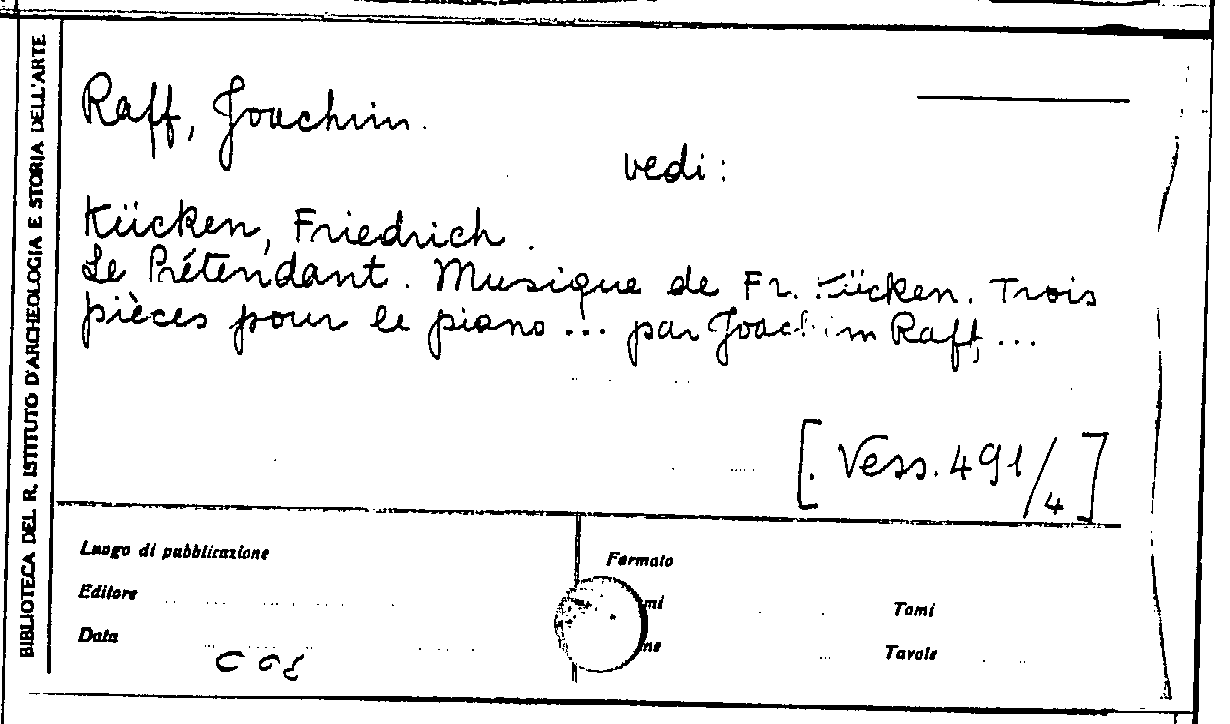 BIBLIOTECA DEL R. ISTITUTO D'ARCHEOLOGIA E STORIA DELL'ARTE
Raff, Joachim.
vedi:
Kücken, Friedrich.
Le Prétendant. Musique de Fr. Kücken. Trois
pièces pour le piano ... par Joachim Raff, ...
[Vess. 491/4]
Luogo di pubblicazione
Formato
Editore
Tomi
Data
Tavole